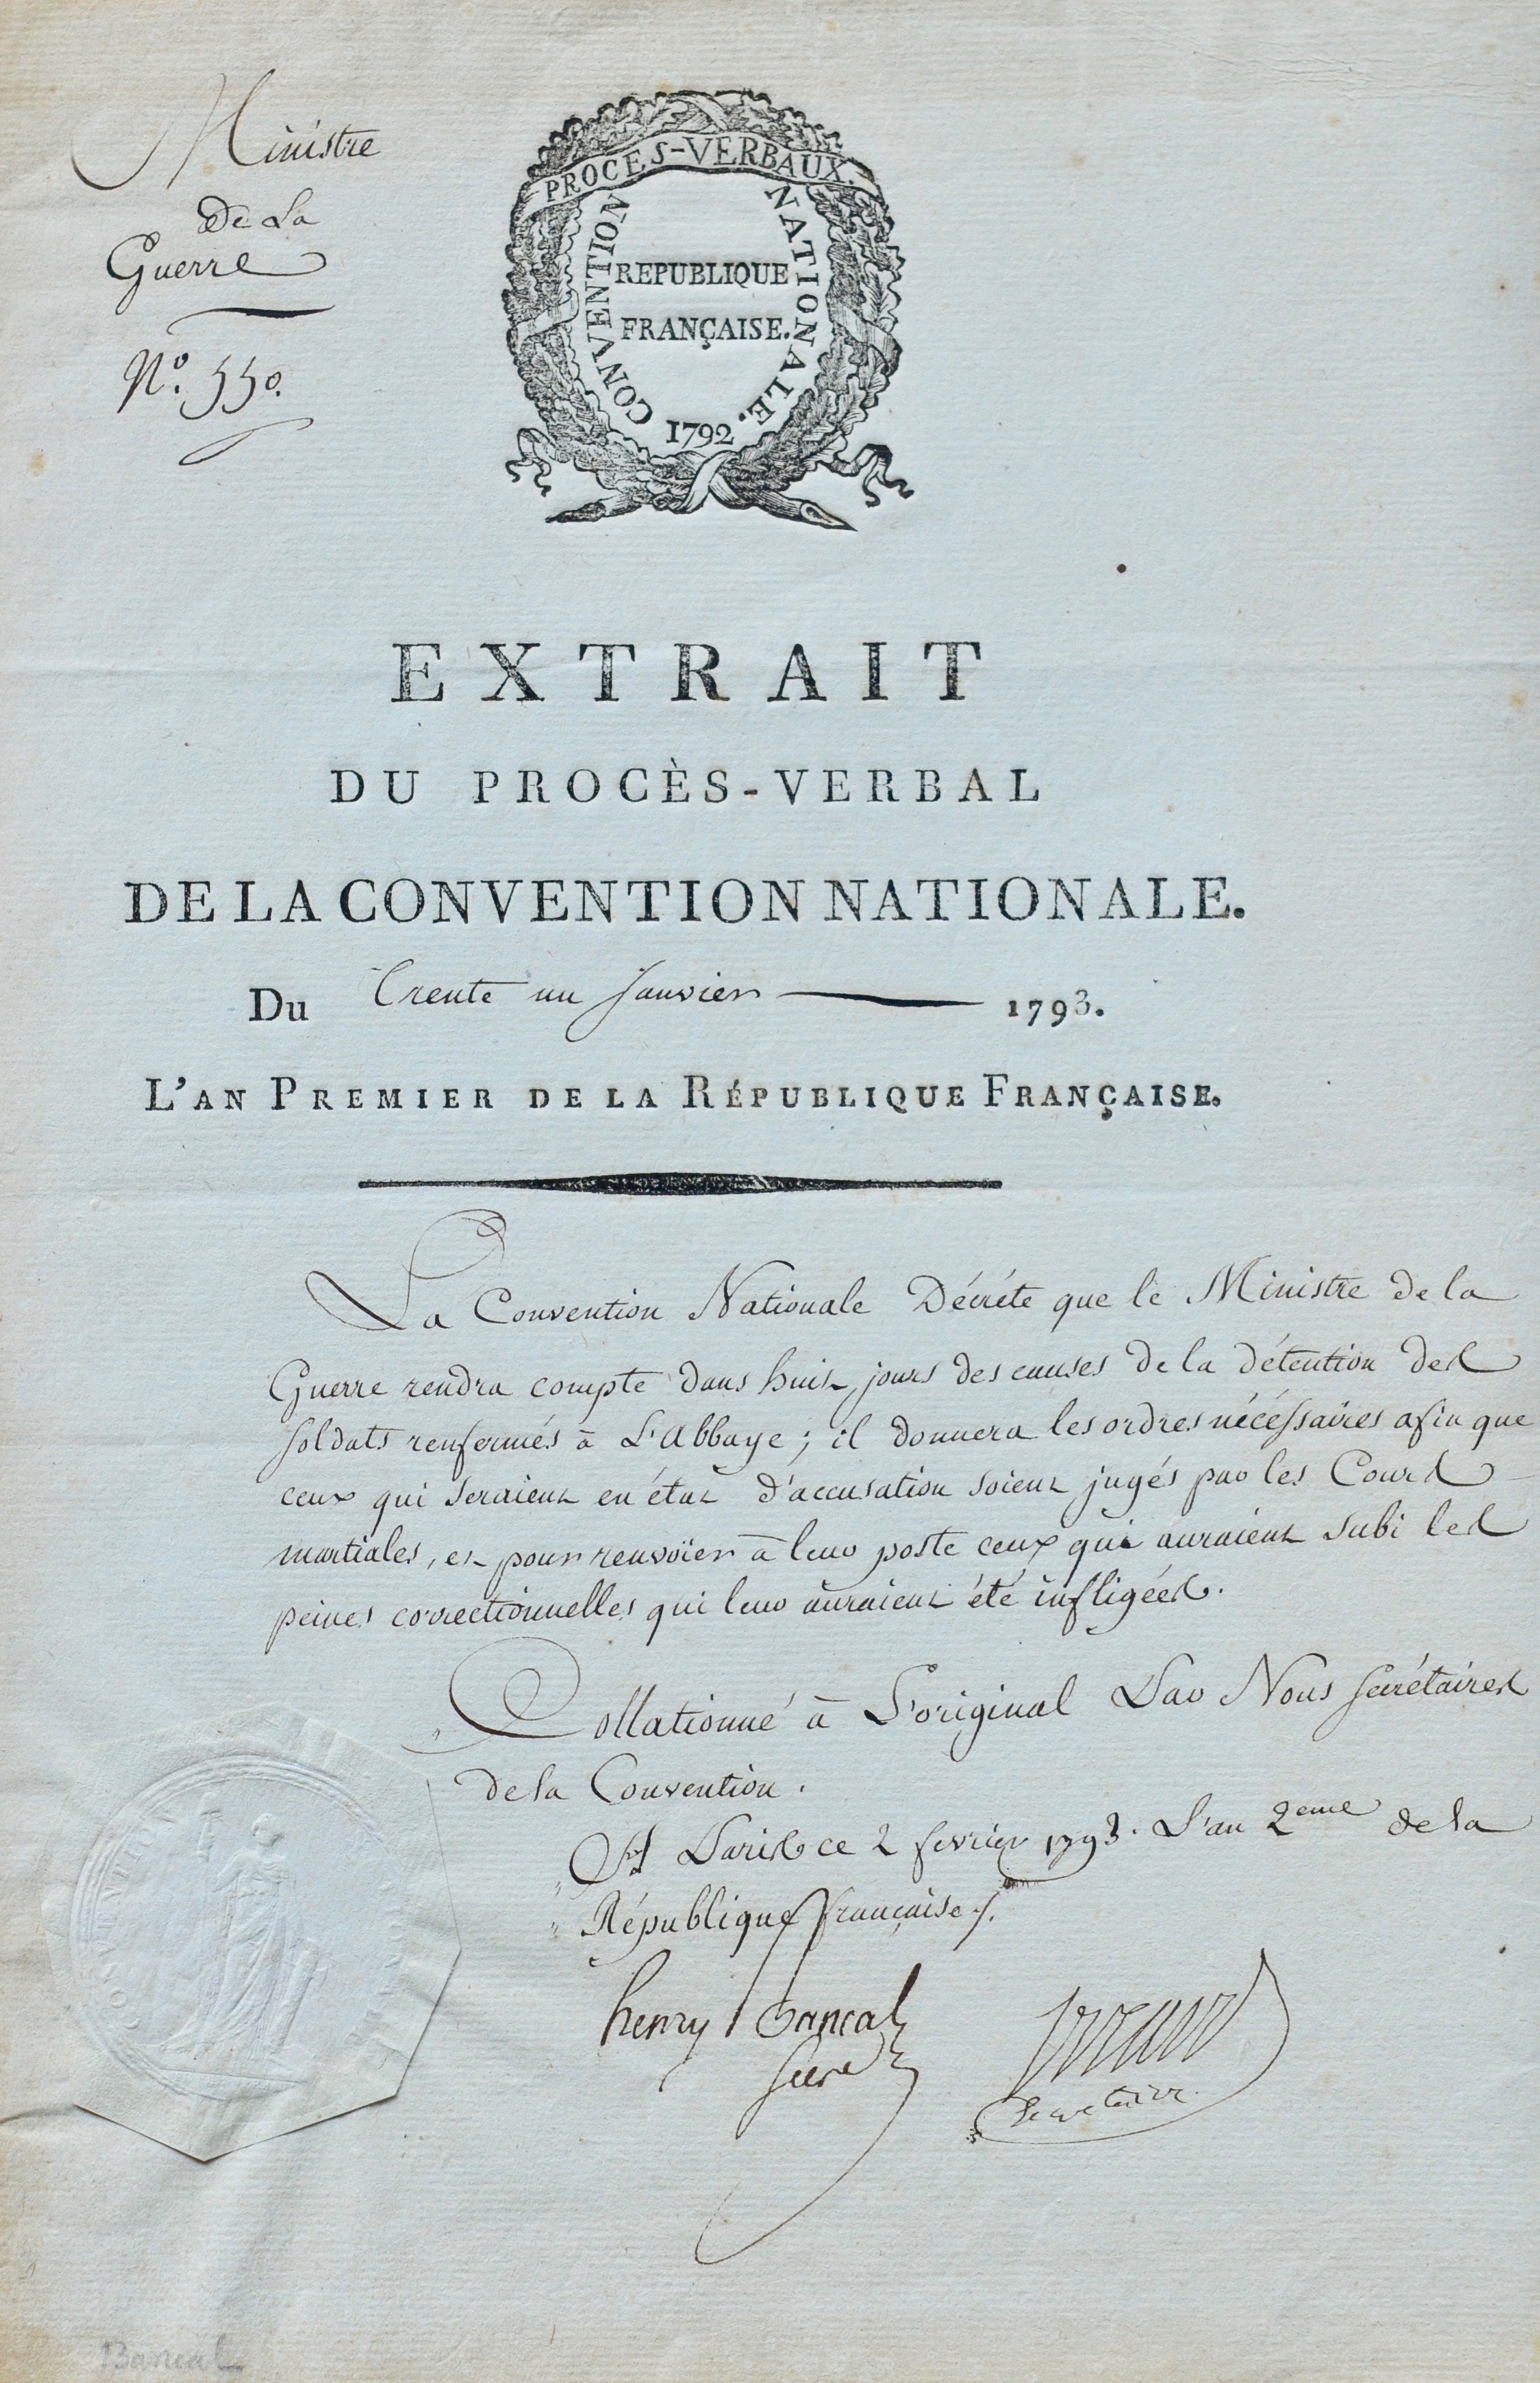 Ministre
De La
Guerre
N.º 550.
PROCES-VERBAUX.
CONVENTION NATIONALE.
REPUBLIQUE
FRANÇAISE.
1792
EXTRAIT
DU PROCÈS-VERBAL
DE LA CONVENTION NATIONALE.
Du trente un janvier 1793.
L'AN PREMIER DE LA RÉPUBLIQUE FRANÇAISE.
La Convention Nationale Décréte que le Ministre de la
Guerre rendra compte dans huit jours des causes de la détention des
soldats renfermés à L'Abbaye ; il donnera les ordres nécéssaires afin que
ceux qui seraient en état d'accusation soient jugés par les Cours
martiales, et pour renvoïer à leur poste ceux qui auraient subi les
peines correctionnelles qui leur auraient été infligées.
Collationné à L'original Par Nous secrétaires
de la Convention.
A Paris ce 2 fevrier 1793. L'an 2eme de la
République française ./.
henry bancal
secre
secretaire
CONVENTION
Bancal